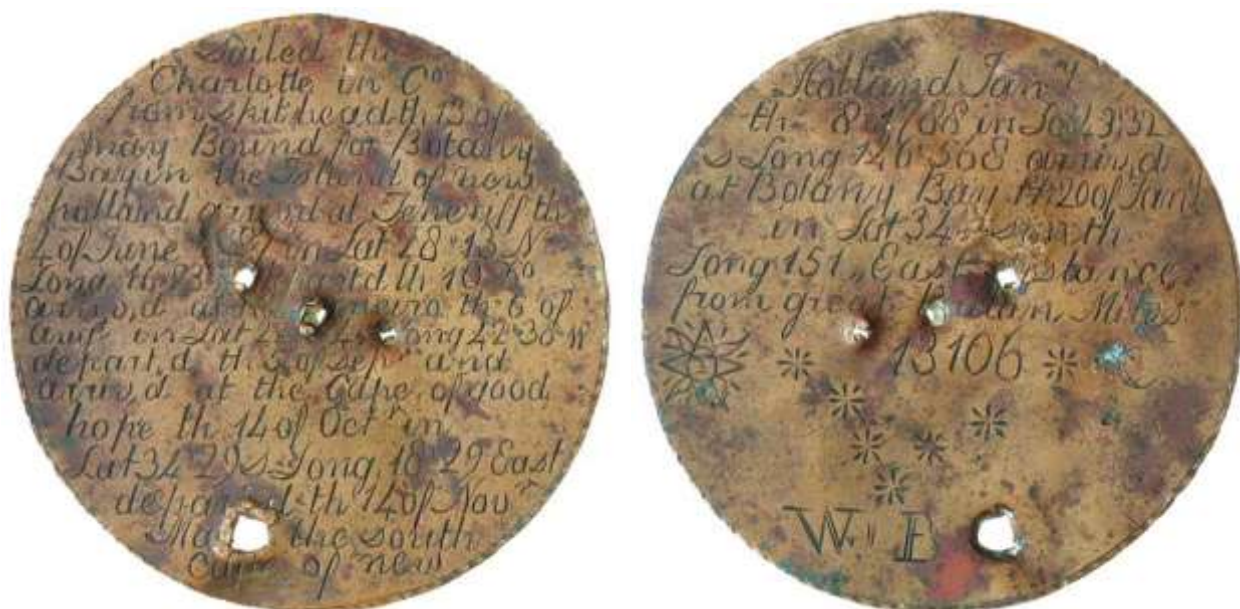 Sailed the
Charlotte in Co
from spit head th 13 of
may Bound for Botany
Bay in the Island of new
holland arrived at Teneriff th
4 of June in Lat 28·13 N
Long 16·23 th 10
arriv,d at th 6 of
Augt in Lat 22 Long 22·30 W
depart,d th 3 of Sepr and
arriv,d at the Cape of good
hope th 14 of Octr in
Lat 34·29 S Long 18·29 East
depart,d th 14 of Novr
Made the South
Cape of new
Holland Jany
the 8 1788 in Lat 43·32
S Long 146·56 E arriv,d
at Botany Bay th 20 of Jany
in Lat 34 South
Long 151 East distance
from great Miles
13106
W B